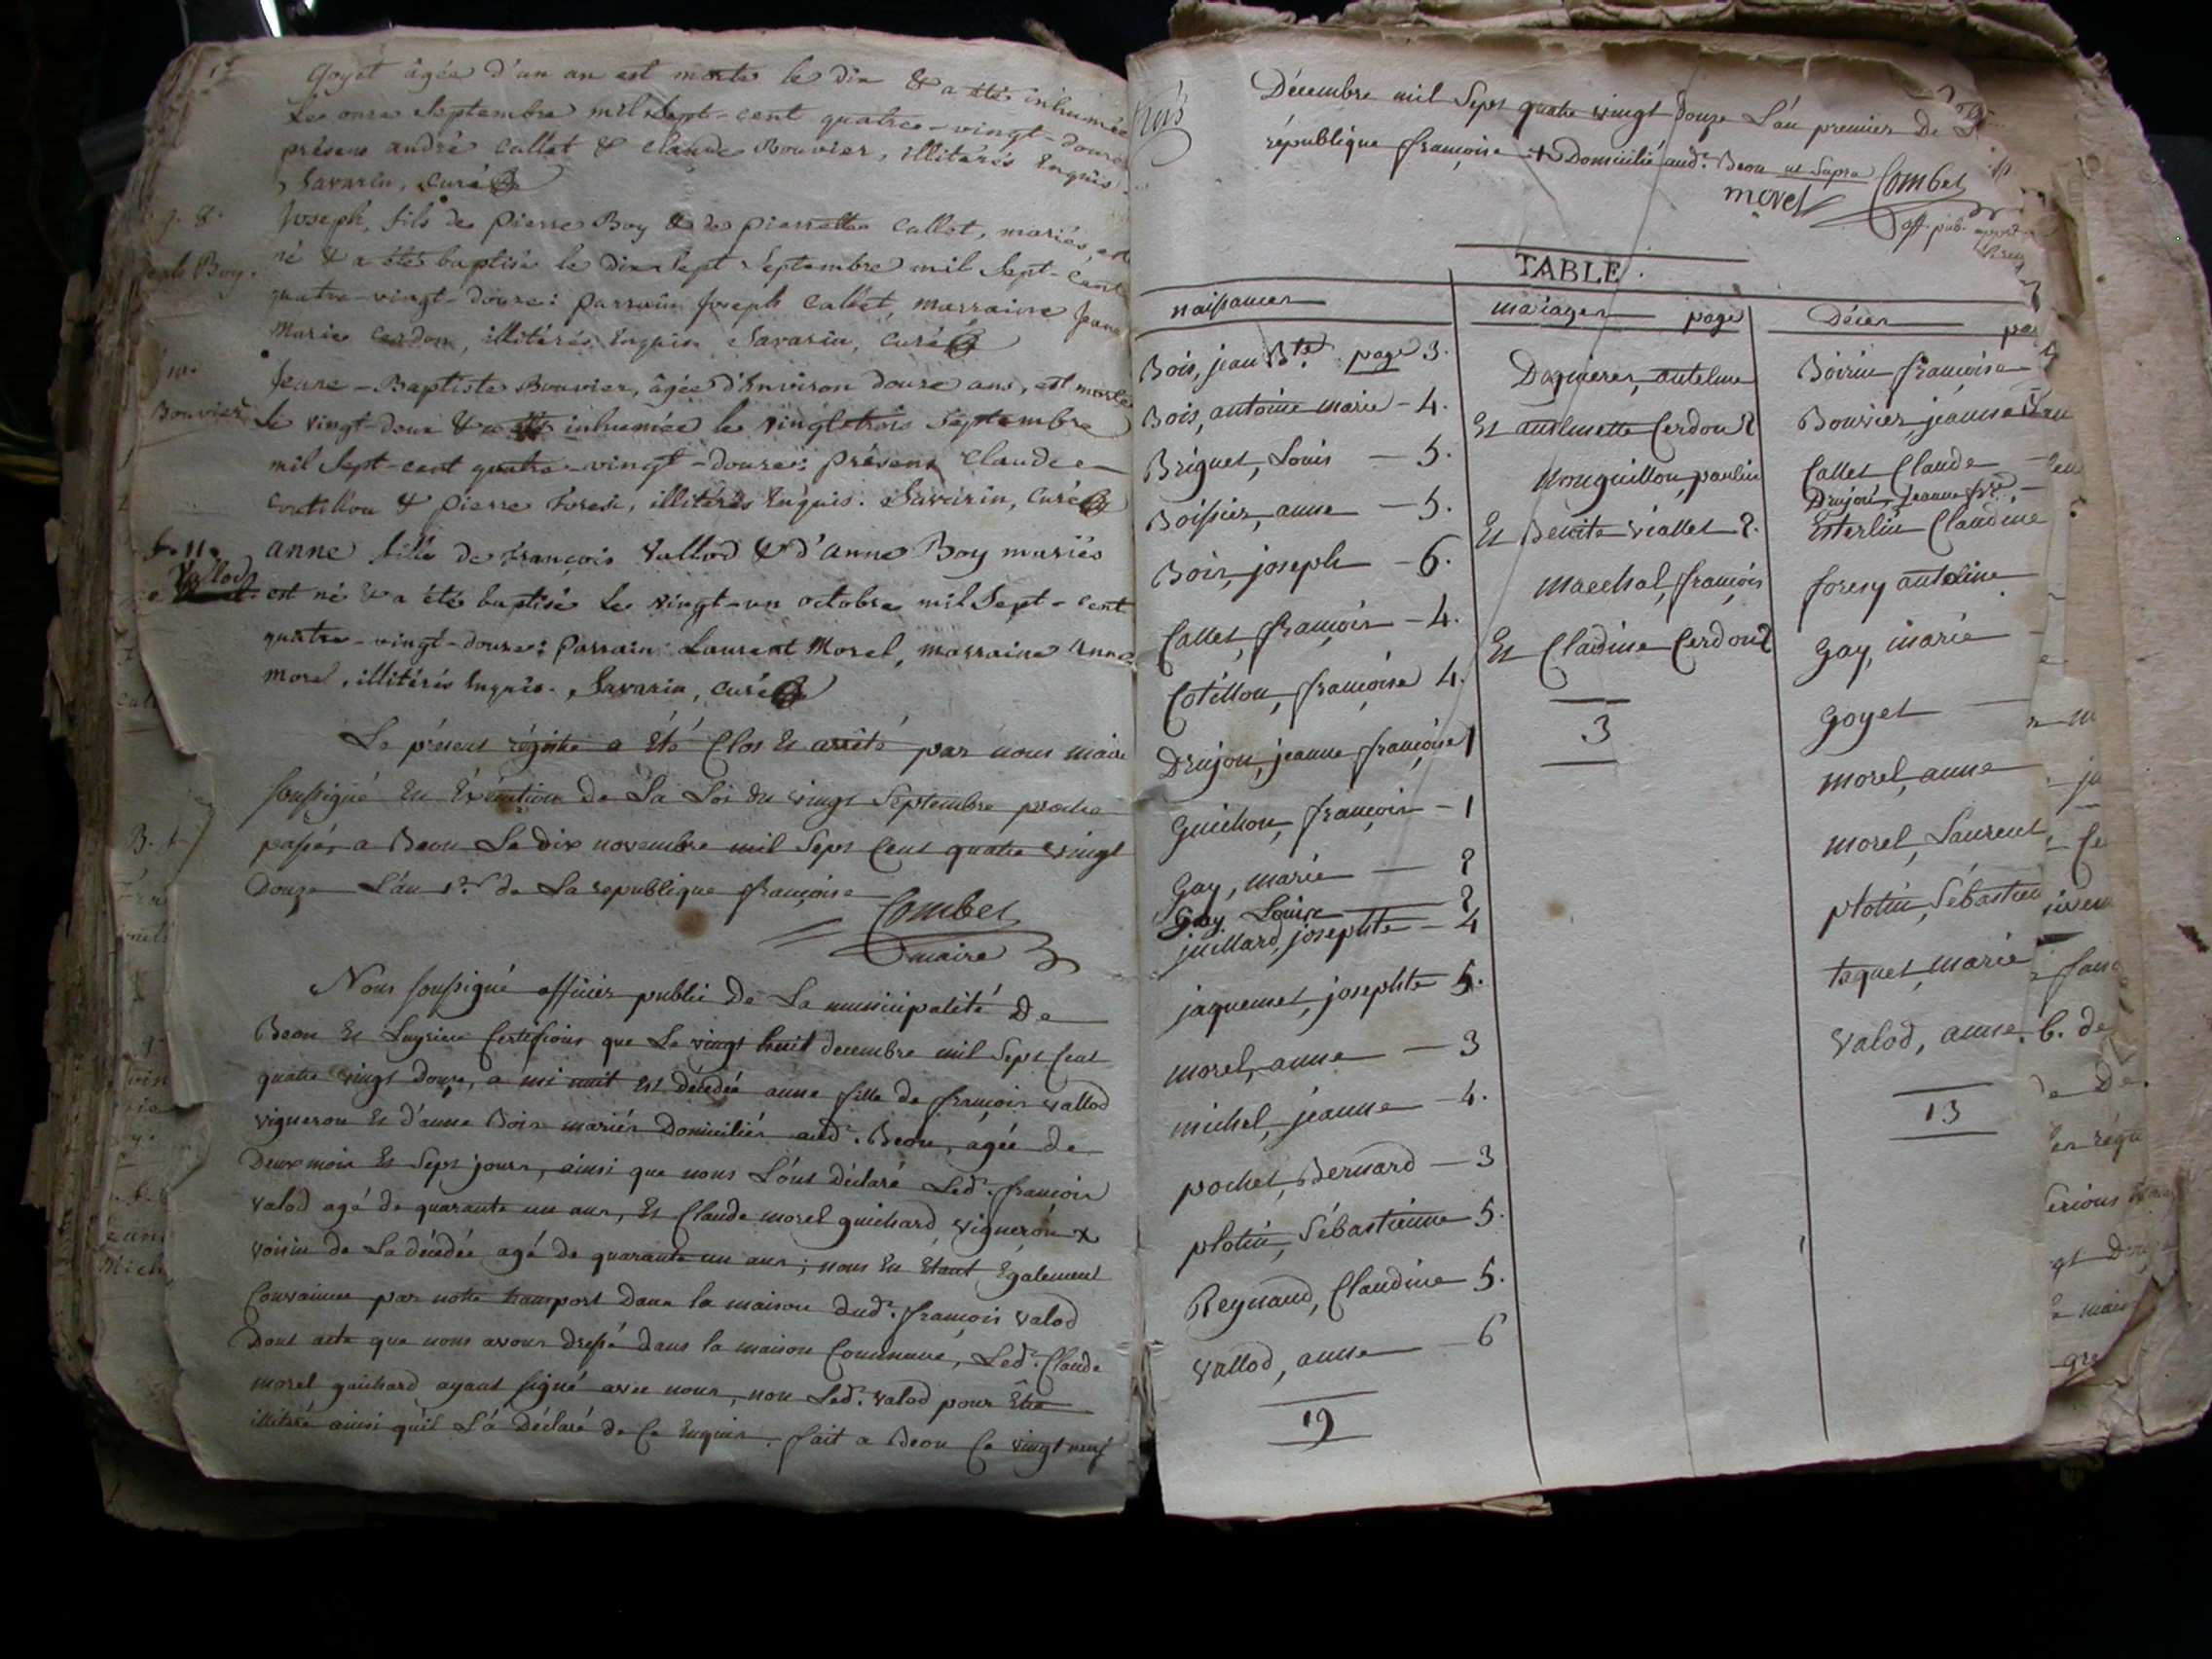 Goyet âgée d'un an est morte le dix & a été inhumée
Le onze Septembre mil Sept-cent quatre-vingt-douze
présens andré Callet & Claude Bouvier, illitérés Enquis.
Savarin, curé
Joseph, fils de Pierre Boy & de pierrette Callet, mariés, est
né & a été baptisé le dix Sept Septembre mil Sept-Cent
quatre-vingt-douze: parrain Joseph Callet, marraine Jeane
Marie Cerdon, illitérés Enquis. Savarin, Curé
Bouvier
Jeane-Baptiste Bouvier, âgée d'Environ douze ans, est morte
Le vingt-deux & a été inhumée le vingt-trois Septembre
mil Sept-cent quatre-vingt-douze: présens Claude
Coutillon & Pierre foresi, illitérés Enquis. Savarin, Curé
Vallod
anne fille de françois Vallod & d'anne Boy mariés
est né & a été baptisé Le vingt-un octobre mil Sept-Cent
quatre-vingt-douze: parrain Laurent Morel, marraine Anne
morel, illitérés Enquis. Savarin, curé
Le présent régistre a Eté Clos Et arrêté par nous maire
soussigné En Exécution de La Loi du vingt Septembre proche
passé, a Beon Le dix novembre mil Sept Cent quatre vingt
Douze L'an 1er de La republique françoise
Combet
maire
Nous soussigné officier public De La municipalité De
Beon Et Luyrieu Certifions que Le vingt huit decembre mil Sept Cent
quatre vingt douze, a mi nuit Est Décédée anne fille de françois vallod
vigneron Et d'anne Bois mariés Domiciliés aud. Beon, agée de
Deux mois Et Sept jours, ainsi que nous L'ont déclaré Led. françois
valod agé de quarante un ans, Et Claude morel guichard vigneron x
voisin de La décédée agé de quarante un ans; nous En Etant Egalement
Convaincu par notre transport Dans la maison dud. françois valod
Dont acte que nous avons dressé dans la maison Commune, Led. Claude
morel guichard ayant signé avec nous, non Led. valod pour Être
illitéré ainsi qu'il L'a Déclaré de Ce Enquis. fait a Beon Ce vingt neuf
Décembre mil Sept quatre vingt Douze L'an premier De
république françoise + Domicilié aud. Beon ut Supra
morel Combet
off. pub.
TABLE.
naissances
Bois, jean Bte page 3.
Bois, antoine marie - 4.
Briguet, Louis - 5.
Boissier, anne - 5.
Bois, joseph - 6.
Callet, françois - 4.
Cotillon, françoise 4.
Drujon, jeanne françoise 1
Guichon, françois - 1
Gay, marie - 2
Gay Louise - 2
juillard, josephte - 4
jaquemet, josephte 5.
morel, anne - 3
michel, jeanne - 4.
pochet, Bernard - 3
plotin, Sébastienne 5.
Reynaud, Claudine 5.
vallod, anne - 6
19
mariages page
Dagnieres, antelme
Et anthmette Cerdon 2
Monguillon, paulin
Et Benoite viallet 2.
Marechal, françois
Et Claudine Cerdon 2
3
Décès
Boirin françoise
Bouvier, jeanne
Callet Claude
Drujon, jeanne frse
Esterlin Claudine
foresy antoine
Gay, marie
Goyet
morel, anne
morel, Laurent
plotin, Sébastien
taquet, marie
valod, anne
13